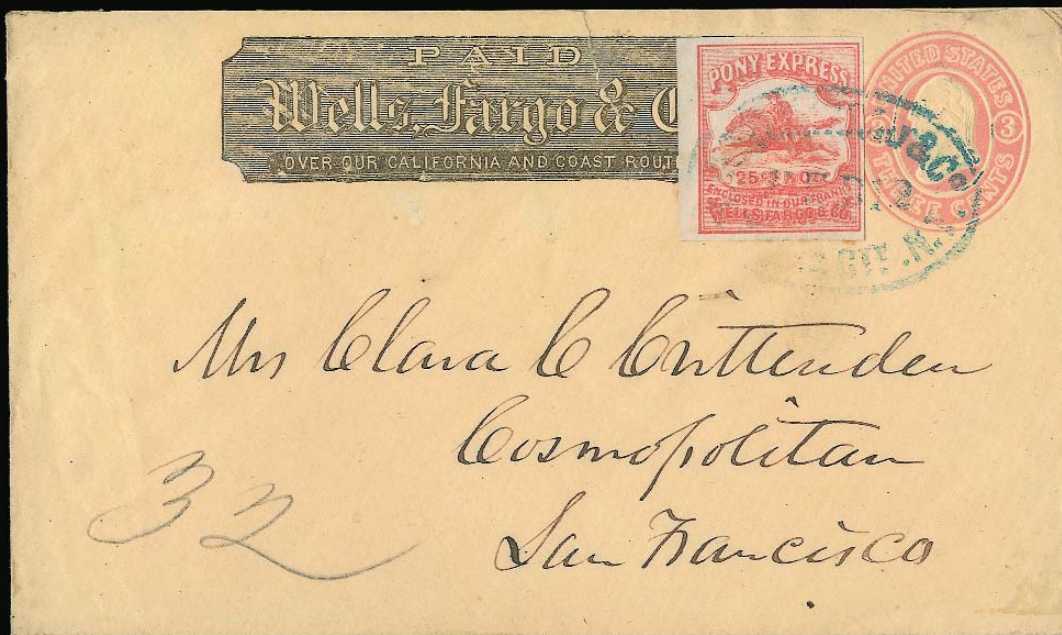 PAID
Wells, Fargo & C
OVER OUR CALIFORNIA AND COAST ROUT
PONY EXPRESS
25 Cts
ENCLOSED IN OUR FRANKS
WELLS, FARGO & CO.
UNITED STATES
3
THREE CENTS
& Co.
N.
Mrs Clara C Crittenden
Cosmopolitan
San Francisco
32